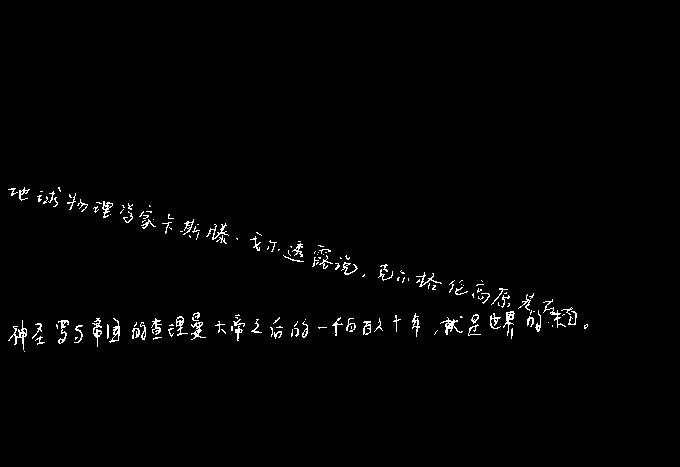 地球物理学家卡斯滕·戈尔透露说,克尔格伦高原是在
神圣罗马帝国的查理曼大帝之后的一千百十年,就是世界的末日。